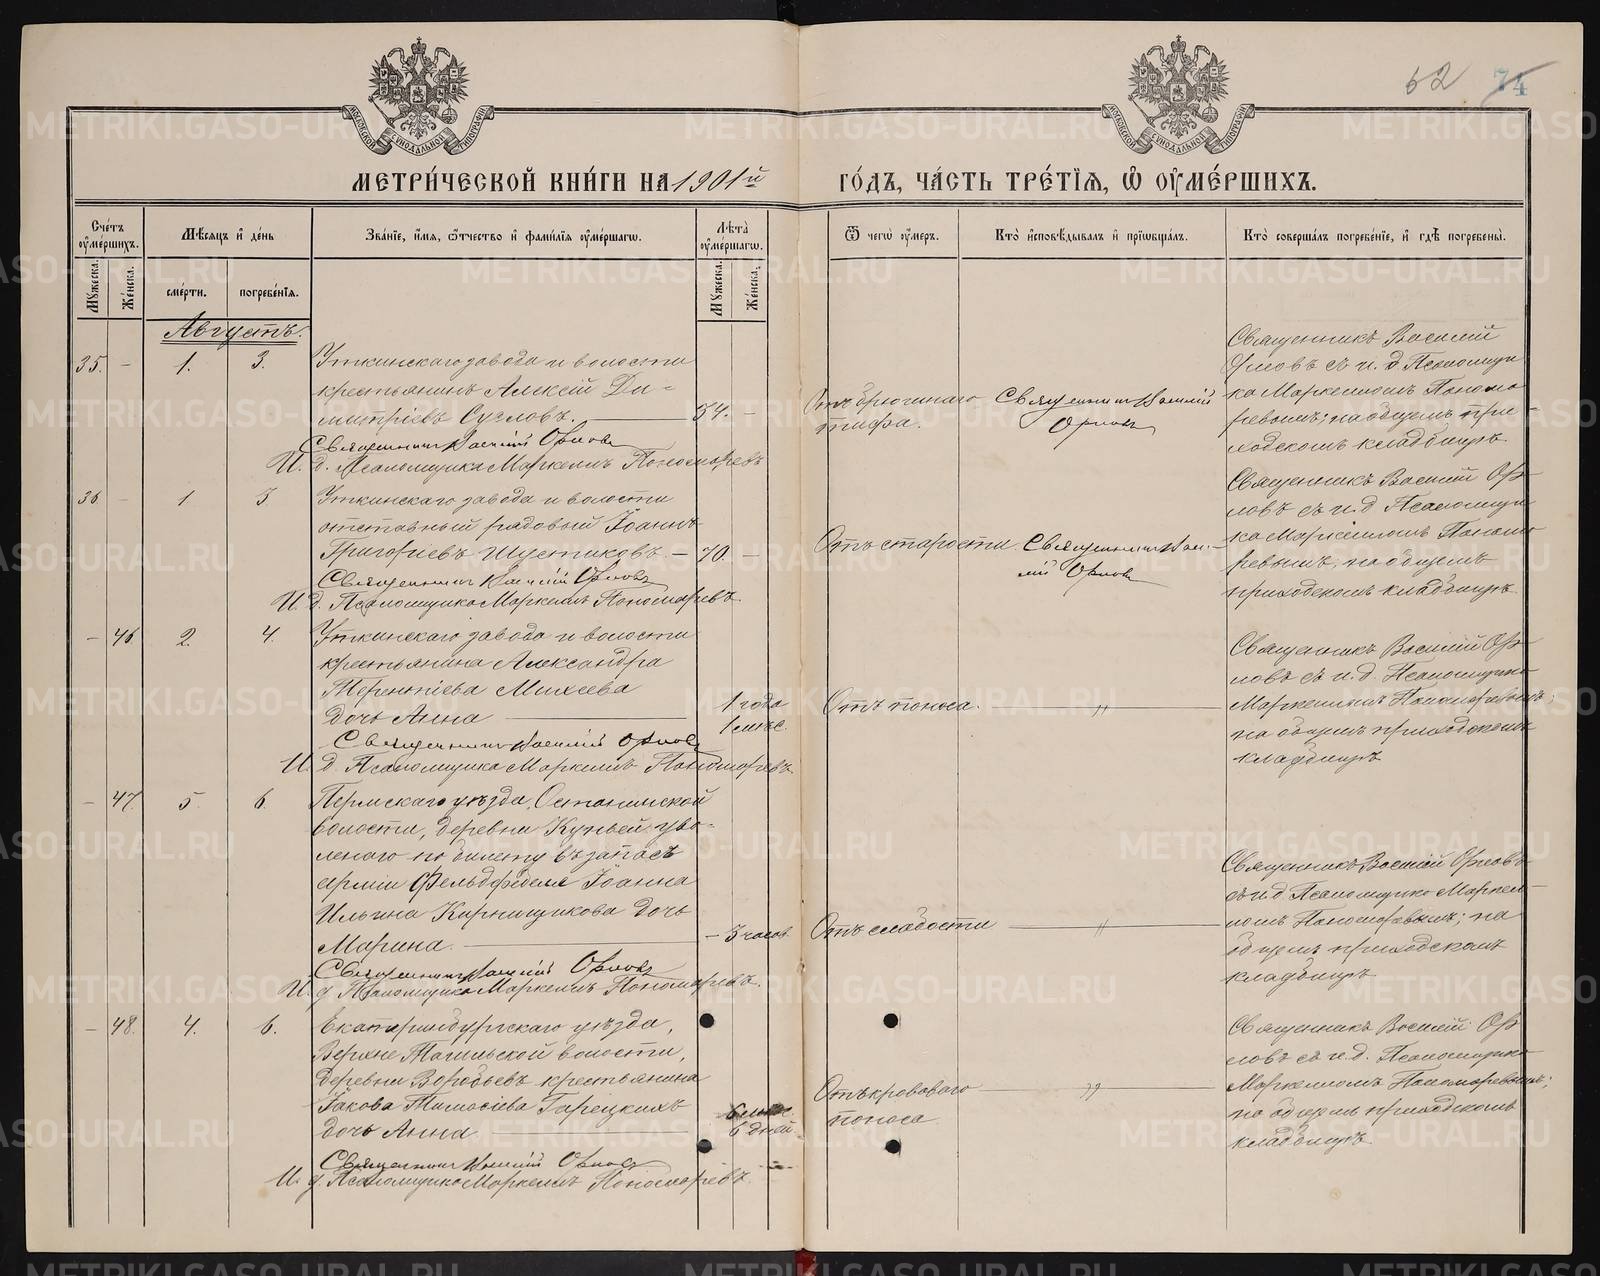 62 74
МЕТРИЧЕСКОЙ КНИГИ НА 1901й ГОДЪ, ЧАСТЬ ТРЕТІЯ, Ѡ ОУМЕРШИХЪ.
Счетъ оумершихъ.
Мѣсяцъ и день
Званіе, имя, ѿчество и фамилія оумершагѡ.
Лѣта оумершагѡ.
Ѿ чегѡ оумеръ.
Кто исповѣдывалъ и пріобщалъ.
Кто совершалъ погребеніе, и гдѣ погребены.
Мужеска. Женска. смерти. погребенія. Мужеска. Женска.
Августъ.
35. – 1. 3.
Уткинскаго завода и волости
крестьянинъ Алексій Ди-
митріевъ Суслов. 54. –
Отъ брюшнаго
тифа.
Священникъ Василій
Орловъ
Священникъ Василій
Орловъ съ и. д. Псаломщи
ка Маркелломъ Пономо
ревымъ; на общемъ при-
ходскомъ кладбищѣ.
Священникъ Василій Орловъ
И. д. Псаломщика Маркеллъ Пономаревъ
36 – 1 3.
Уткинскаго завода и волости
отставный рядовый Іоаннъ
Григорьевъ Шустиковъ. – 70. –
Отъ старости.
Священникъ Васи-
лій Орловъ
Священникъ Василій Ор
ловъ съ и. д. Псаломщи
ка Маркелломъ Понома
ревымъ, на общемъ
приходскомъ кладбищѣ.
Священникъ Василій Орловъ
И. д. Псаломщика Маркеллъ Пономаревъ.
– 46 2. 4.
Уткинскаго завода и волости
крестьянина Александра
Терентіева Михеева
дочь Анна 1 года
1 мѣс.
Отъ поноса. "
Священникъ Василій Ор
ловъ съ и. д. Псаломщика
Маркелломъ Пономаревымъ;
на общемъ приходскомъ
кладбищѣ
Священникъ Василій Орловъ
И. д. Псаломщика Маркеллъ Пономаревъ.
– 47. 5. 6.
Пермскаго уѣзда, Останинской
волости, деревни Кузьей, уво-
леннаго по билету въ запасъ
арміи Фельдфебеля Іоанна
Ильина Кирпищикова дочь
Марина. – 3 часов.
Отъ слабости "
Священникъ Василій Орловъ
съ и. д. Псаломщика Маркел-
ломъ Пономаревымъ; на
общемъ приходскомъ
кладбищѣ
Священникъ Василій Орловъ
И. д. Псаломщика Маркеллъ Пономаревъ.
– 48. 4. 6.
Екатеринбургскаго уѣзда,
Верхне Тагильской волости,
деревни Воробьевъ крестьянина
Іакова Тимофіева Гарецкихъ
дочь Анна 6 мѣс.
6 дней.
Отъ кроваваго
поноса "
Священникъ Василій Ор
ловъ съ и. д. Псаломщика
Маркелломъ Пономаревымъ;
на общемъ приходскомъ
кладбищѣ.
Священникъ Василій Орловъ
И. д. Псаломщика Маркеллъ Пономаревъ.
METRIKI.GASO-URAL.RU